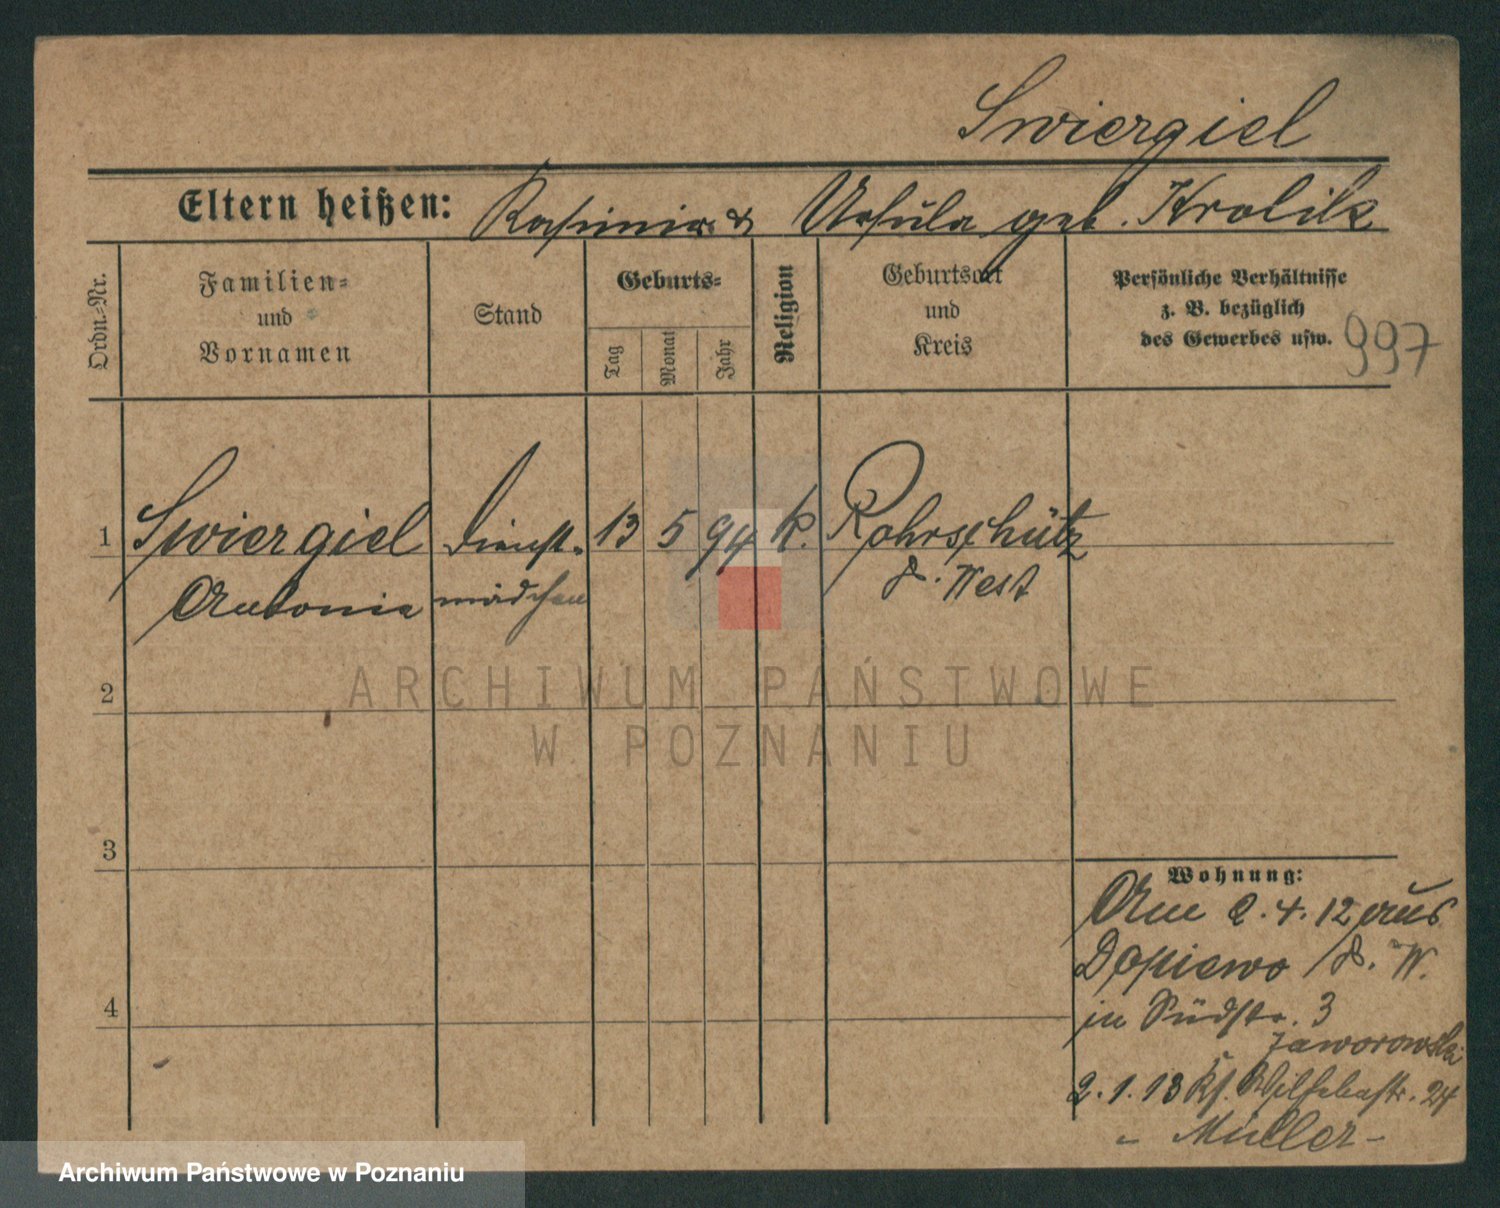 Swiergiel
Eltern heißen: Kasimir & Ursula geb. Krolik
Ordn.-Nr.
Familien-
und
Vornamen
Stand
Geburts-
Tag
Monat
Jahr
Religion
Geburtsort
und
Kreis
Persönliche Verhältnisse
z. B. bezüglich
des Gewerbes usw.
997
1 Swiergiel Dienst- 13 5 94 k. Rohrschütz
Antonie mädchen P. West
2
3
4
Wohnung:
Am 2.4.12 aus
Dopiewo P. W.
in Südstr. 3
Jaworowski
2.1.13 Ks. 24
- Müller -
ARCHIWUM PAŃSTWOWE
W POZNANIU
Archiwum Państwowe w Poznaniu